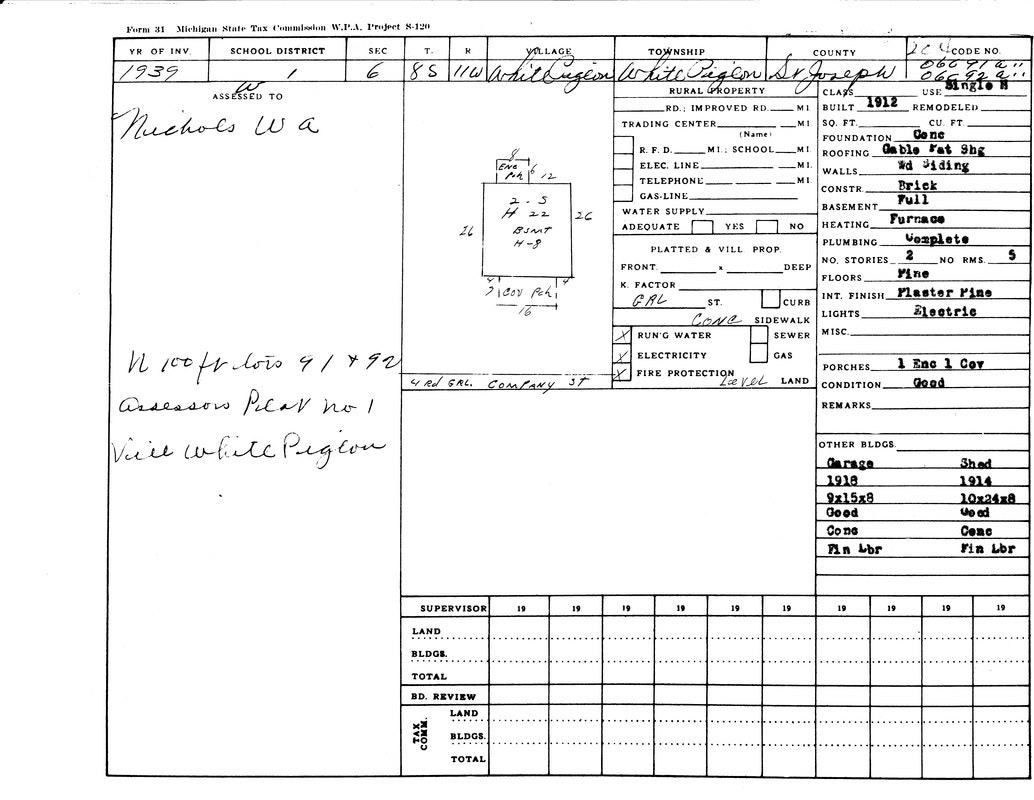 Form 31 Michigan State Tax Commission W.P.A. Project S-120
YR OF INV. SCHOOL DISTRICT SEC T. R VILLAGE TOWNSHIP COUNTY CODE NO.
1939 1 6 8S 11W White Pigeon White Pigeon St Joseph 06691 a 06692 a
ASSESSED TO
Nichols W A
N 100 ft lots 91 & 92
Assessors Plat no 1
Vill White Pigeon
8
ENC Pch 6 12
2-S
H 22
BSMT
H-8
26 26
4 4
7 COV Pch
16
4 Rd GRL. COMPANY ST
RURAL PROPERTY
RD.; IMPROVED RD. MI.
TRADING CENTER MI.
(Name)
R. F. D. MI.; SCHOOL MI.
ELEC. LINE MI.
TELEPHONE MI.
GAS-LINE
WATER SUPPLY
ADEQUATE YES NO
PLATTED & VILL PROP.
FRONT. x DEEP
K. FACTOR
GRL ST. CURB
CONC SIDEWALK
X RUN'G WATER SEWER
X ELECTRICITY GAS
X FIRE PROTECTION
Level LAND
CLASS USE Single H
BUILT 1912 REMODELED
SQ. FT. CU. FT.
FOUNDATION Conc
ROOFING Gable Pat Shg
WALLS Wd Siding
CONSTR. Brick
BASEMENT Full
HEATING Furnace
PLUMBING Complete
NO. STORIES 2 NO RMS. 5
FLOORS Pine
INT. FINISH Plaster Pine
LIGHTS Electric
MISC.
PORCHES 1 Enc 1 Cov
CONDITION Good
REMARKS
OTHER BLDGS.
Garage Shed
1918 1914
9x15x8 10x24x8
Good Good
Conc Conc
Fin Lbr Fin Lbr
SUPERVISOR 19 19 19 19 19 19 19 19 19 19
LAND
BLDGS.
TOTAL
BD. REVIEW
TAX COMM.
LAND
BLDGS.
TOTAL